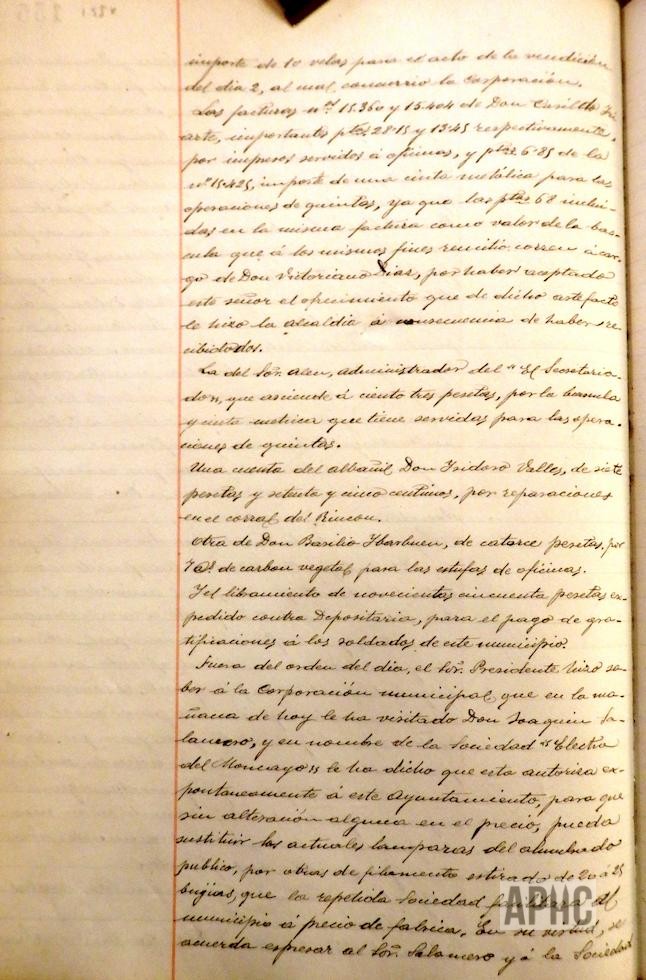 importe de 10 velas para el acto de la vendición
del dia 2, al cual concurrio la Corporación.
Las facturas nos 15.360 y 15.404 de Don Casildo Iri-
arte, importantes ptas 28'15 y 13'45 respectivamente,
por impresos servidos á oficinas, y ptas 6'85 de la
nº 15.425, importe de una cinta metálica para las
operaciones de quintas, ya que las ptas 68 inclui-
das en la misma factura como valor de la bas-
cula que á los mismos fines remitió, corren á car-
go de Don Victoriano Diaz, por haber aceptado
este señor el ofrecimiento que de dicho artefacto
le hizo la alcaldia á consecuencia de haber re-
cibido dos.
La del Sor. Aleu, administrador del "El Secretaria-
do", que asciende á ciento tres pesetas, por la bascula
y cinta metrica que tiene servidas para las opera-
ciones de quintas.
Una cuenta del albañil Don Isidoro Valles, de siete
pesetas y setenta y cinco centimos, por reparaciones
en el corral del Rincon.
Otra de Don Basilio Ybarbuen, de catorce pesetas, por
7 de carbon vegetal para las estufas de oficinas.
Y el libramiento de novecientas cincuenta pesetas ex-
pedido contra Depositaria, para el pago de gra-
tificaciones á los soldados de este municipio.
Fuera del orden del dia, el Sor. Presidente hizo sa-
ber á la Corporación municipal, que en la ma-
ñana de hoy le ha visitado Don Joaquin Sa-
lamero, y en nombre de la Sociedad "Electra
del Moncayo" le ha dicho que esta autoriza ex-
pontaneamente á este Ayuntamiento, para que
sin alteración alguna en el precio, pueda
sustituir las actuales lamparas del alumbrado
publico, por otras de filamento estirado de 20 á 25
bugias, que la repetida Sociedad facilitara al
municipio á precio de fabrica. En su virtud, se
acuerda expresar al Sor. Salamero y á la Sociedad
APHC